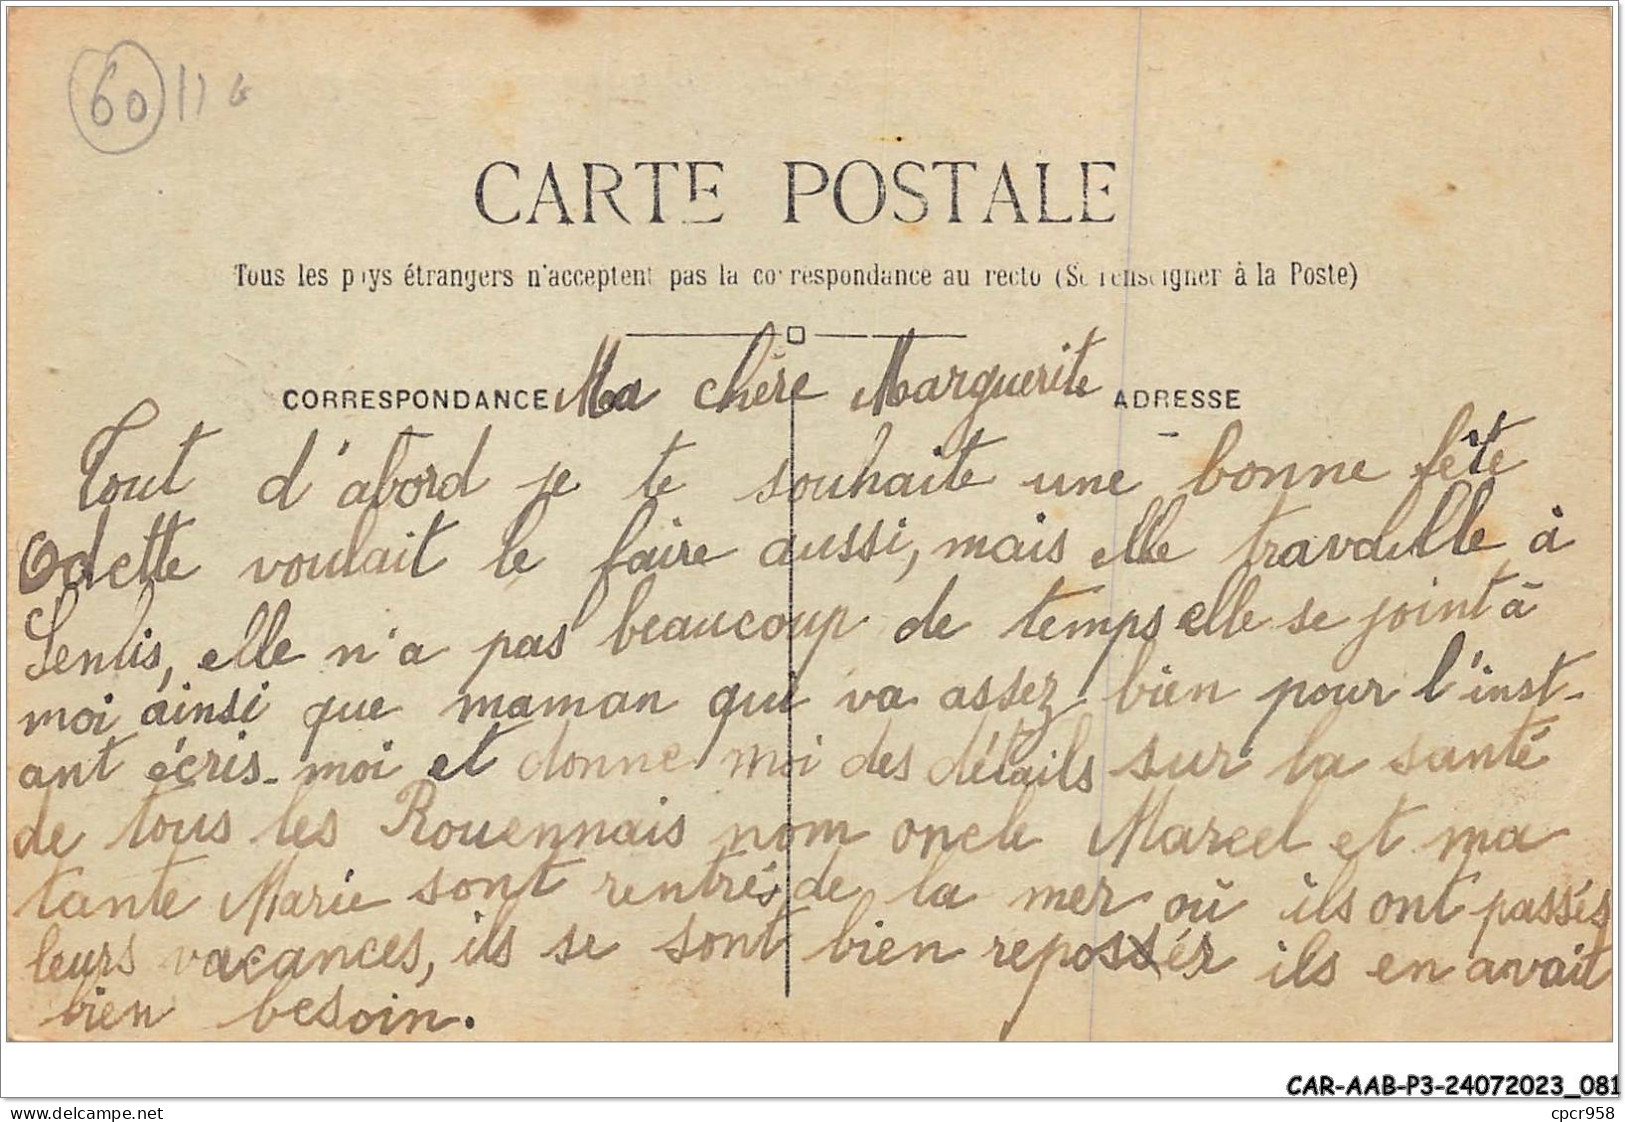 60 11 6
CARTE POSTALE
Tous les pays étrangers n'acceptent pas la correspondance au recto (Se renseigner à la Poste)
CORRESPONDANCE Ma chère Marguerite ADRESSE
Tout d'abord je te souhaite une bonne fête
Odette voulait le faire aussi, mais elle travaille à
Senlis, elle n'a pas beaucoup de temps elle se joint à
moi ainsi que maman qui va assez bien pour l'inst-
ant écris-moi et donne moi des détails sur la santé
de tous les Rouennais nom oncle Marcel et ma
tante Marie sont rentrés de la mer où ils ont passés
leurs vacances, ils se sont bien reposér ils en avait
bien besoin.
CAR-AAB-P3-24072023_081
www.delcampe.net
cpcr958